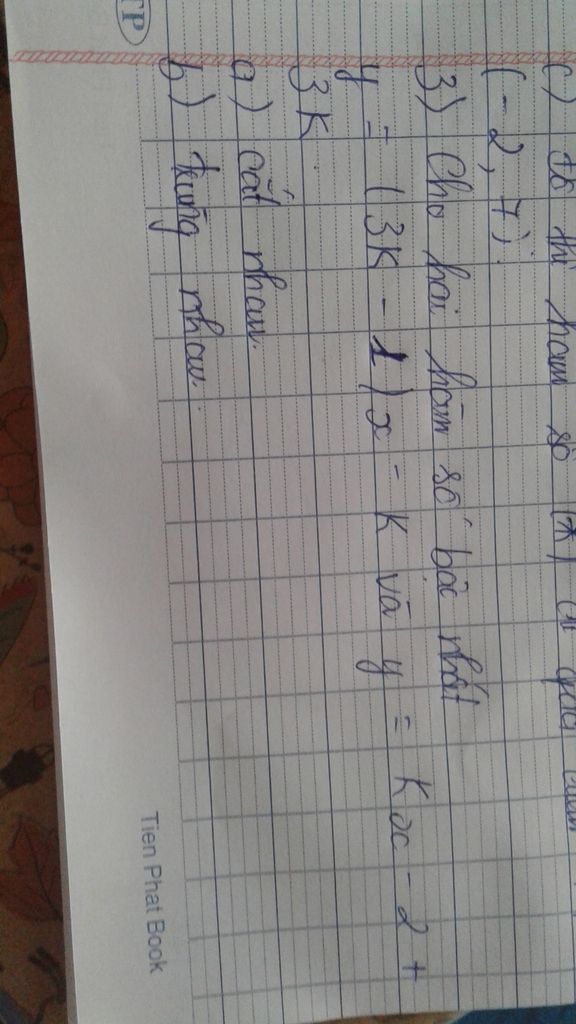 c) đồ thị hàm số (*) đi qua
(-2, 7).
3) Cho hai hàm số bậc nhất
y = (3K - 1)x - K và y = Kx - 2 +
3K.
a) cắt nhau.
b) trùng nhau.
TP
Tien Phat Book